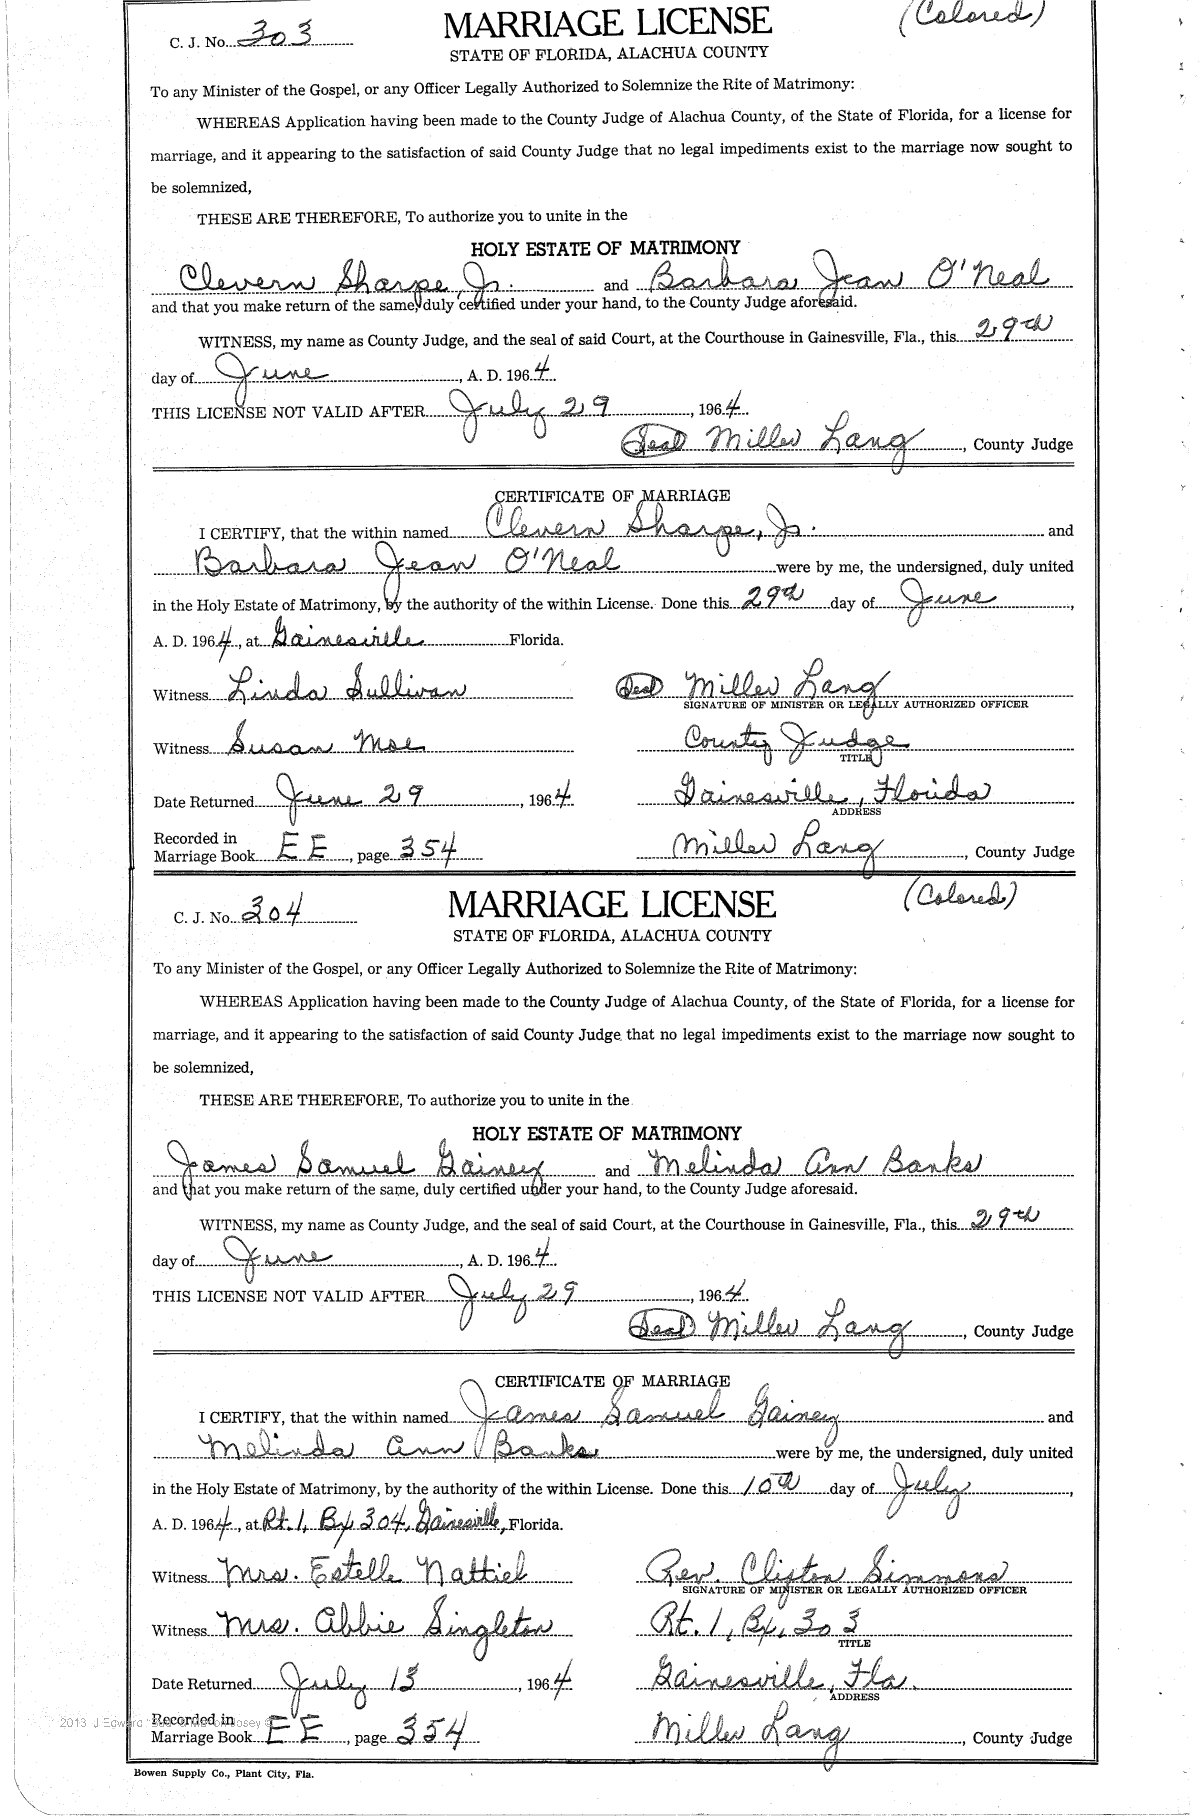 C. J. No. 303 MARRIAGE LICENSE (Colored)
STATE OF FLORIDA, ALACHUA COUNTY
To any Minister of the Gospel, or any Officer Legally Authorized to Solemnize the Rite of Matrimony:
WHEREAS Application having been made to the County Judge of Alachua County, of the State of Florida, for a license for
marriage, and it appearing to the satisfaction of said County Judge that no legal impediments exist to the marriage now sought to
be solemnized,
THESE ARE THEREFORE, To authorize you to unite in the
HOLY ESTATE OF MATRIMONY
Clevern Sharpe, Jr. and Barbara Jean O'Neal
and that you make return of the same, duly certified under your hand, to the County Judge aforesaid.
WITNESS, my name as County Judge, and the seal of said Court, at the Courthouse in Gainesville, Fla., this 29th
day of June, A. D. 1964.
THIS LICENSE NOT VALID AFTER July 29, 1964.
(Seal) Miller Lang, County Judge
CERTIFICATE OF MARRIAGE
I CERTIFY, that the within named Clevern Sharpe, Jr. and
Barbara Jean O'Neal were by me, the undersigned, duly united
in the Holy Estate of Matrimony, by the authority of the within License. Done this 29th day of June,
A. D. 1964, at Gainesville Florida.
Witness Linda Sullivan (Seal) Miller Lang
SIGNATURE OF MINISTER OR LEGALLY AUTHORIZED OFFICER
Witness Susan Moe County Judge
TITLE
Date Returned June 29, 1964. Gainesville, Florida
ADDRESS
Recorded in
Marriage Book EE, page 354 Miller Lang, County Judge
C. J. No. 304 MARRIAGE LICENSE (Colored)
STATE OF FLORIDA, ALACHUA COUNTY
To any Minister of the Gospel, or any Officer Legally Authorized to Solemnize the Rite of Matrimony:
WHEREAS Application having been made to the County Judge of Alachua County, of the State of Florida, for a license for
marriage, and it appearing to the satisfaction of said County Judge that no legal impediments exist to the marriage now sought to
be solemnized,
THESE ARE THEREFORE, To authorize you to unite in the
HOLY ESTATE OF MATRIMONY
James Samuel Gainey and Melinda Ann Banks
and that you make return of the same, duly certified under your hand, to the County Judge aforesaid.
WITNESS, my name as County Judge, and the seal of said Court, at the Courthouse in Gainesville, Fla., this 29th
day of June, A. D. 1964.
THIS LICENSE NOT VALID AFTER July 29, 1964.
(Seal) Miller Lang, County Judge
CERTIFICATE OF MARRIAGE
I CERTIFY, that the within named James Samuel Gainey and
Melinda Ann Banks were by me, the undersigned, duly united
in the Holy Estate of Matrimony, by the authority of the within License. Done this 10th day of July,
A. D. 1964, at Rt. 1, Bx 304, Gainesville, Florida.
Witness Mrs. Estelle Nattiel Rev. Clifton Simmons
SIGNATURE OF MINISTER OR LEGALLY AUTHORIZED OFFICER
Witness Mrs. Abbie Singleton Rt. 1, Bx, 303
TITLE
Date Returned July 13, 1964 Gainesville, Fla.
ADDRESS
Recorded in
Marriage Book EE, page 354 Miller Lang, County Judge
2013 J Edward
Bowen Supply Co., Plant City, Fla.